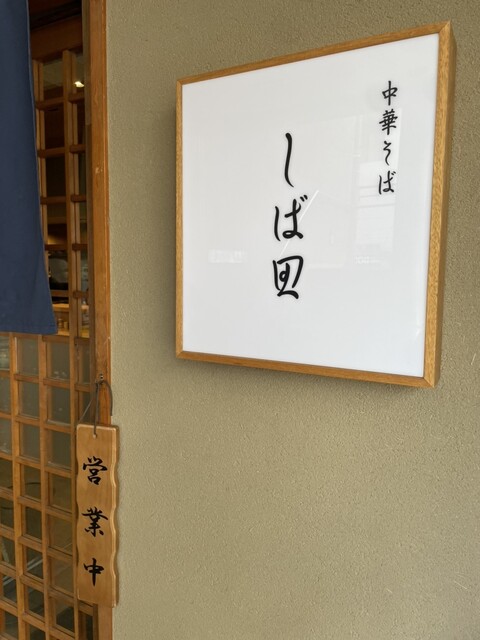 中華そば
しば田
営業中